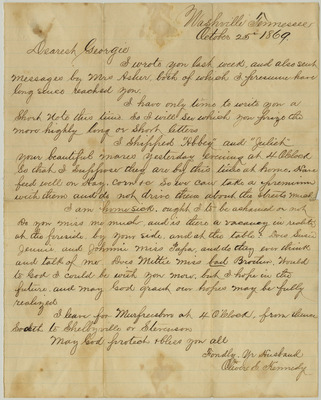 Nashville Tennessee
October 25th 1869
Dearest Georgie
I wrote you last week, and also sent
messages by Mrs Asher, both of which I presume have
long since reached you
I have only time to write you a
Short Note this time So I will See which you prize the
more highly long or Short letters
I Shipped "Abbey" and "Juliet"
Your beautiful mares Yesterday evening at 4 O'Clock
So that I suppose they are by this time at home. Have
feed well on Hay. corn &c So we can take a premium
with them and do not drive them about the Streets much
I am Home Sick, ought I to be ashamed or not
Do you miss me much and is there a vacancy
at the fireside by your side, and at the table? Does
Jennie and Johnnie miss Papa, and do they ever think
and talk of me Does Mettie miss bad Brother. Would
to God I could be with you now, but I hope in the
future. and may God grant our hopes may be fully
realized
I leave for Murfreesboro at 4 O'Clock. from thence
to Shelbyville or Stevenson
May God protect & bless you all
Fondly Yr Husband
Kennedy